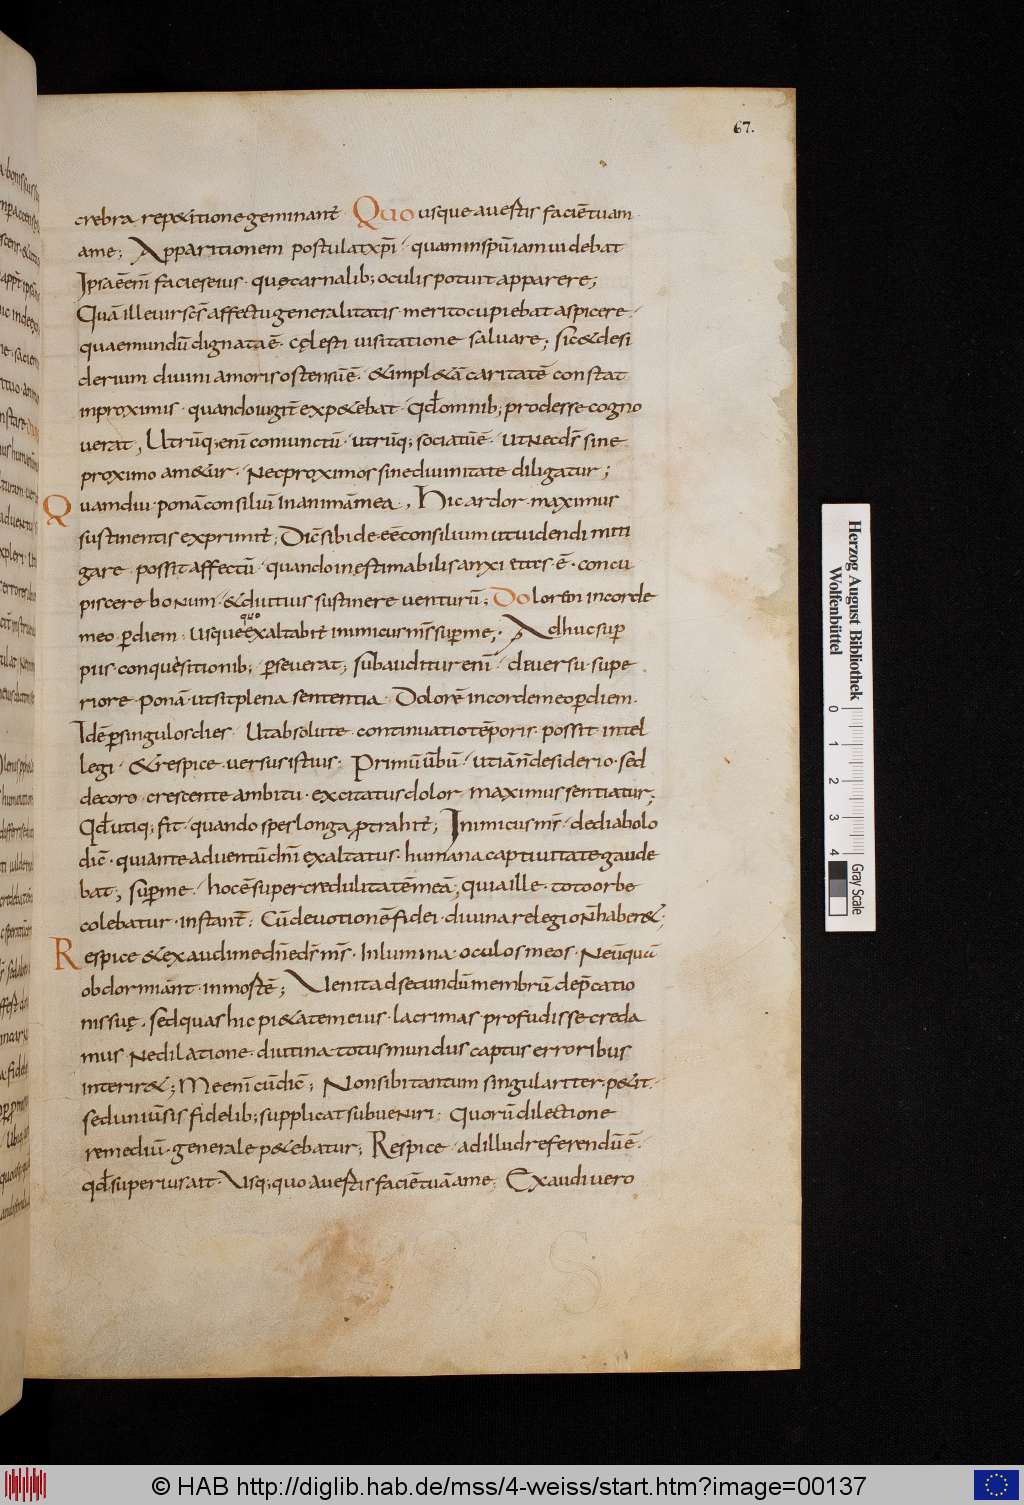 67.
crebra rep&itione geminant̄ Quo usque avertis faciē tuam
a me; Apparitionem postulat xp̄i quam in sp̄u iam videbat
Ipsa ē enī facies eius quę carnalib; oculis potuit apparere;
Quā ille vir scs̄ affectu generalitatis merito cupiebat aspicere
quae mundū dignata ē cęlesti visitatione salvare; sic & desi
derium divini amoris ostensū ē & impl&ā caritatē constat
in proximis quando iugit̄ exp&ebat qđ omnib; prodesse cogno
verat, Utrūq; enī coniunctū utrūq; sociatū ē ut nec ds̄ sine
proximo am&ur Nec proximos sine divinitate diligatur;
Quamdiu ponā consiliū in anima mea, Hic ardor maximus
sustinentis exprimit̄; Dic̄ sibi de ee consilium ut videndi miti
gare possit affectū quando inęstimabilis anxietas ē concu
piscere bonum & diutius sustinere venturū; Dolorem in corde
meo p̱ diem usque quo exaltabit̄ inimicus ms̄ sup̱ me; Adhuc sup̱
pius conquęstionib; p̱severat; subauditur enī diversu supe
riore ponā ut sit plena sententia Dolorē in corde meo p̱ diem
Idē p̱ singulos dies Ut absolute continuatio tēporis possit intel
legi & respice versus istius Primū ūbū ut iā n̄ desiderio sed
decoro crescente ambitu excitatus dolor maximus sentiatur;
Qđ utiq; fit quando spes longa p̱trahit̄; Inimicus ms̄ de diabolo
dic̄ qui ante adventū dn̄i exaltatus humana captivitate gaude
bat, sup̱ me hoc ē super credulitatē meā; quia ille toto orbe
colebatur instant̄ Cū devotionē fidei divina relegio n̄ haber&
Respice & exaudi me dn̄e ds̄ ms̄ Inlumina oculos meos Ne ūquā
obdormiā in mortē; Venit ad secundū membrū dep̱catio
nis suę sed quas hic pi&atem eius lacrimas profudisse creda
mus Ne dilatione diutina totus mundus captus erroribus
interir&; Me enī cū dic̄; Non sibi tantum singulariter p&it
sed uniūsis fidelib; supplicat subveniri Quorū dilectione
remediū generale p&ebatur; Respice ad illud referendū ē
qđ superius ait Usq; quo avertis faciē tuā a me; Exaudi vero
Herzog August Bibliothek
Wolfenbüttel
0 1 2 3 4
Gray Scale
© HAB http://diglib.hab.de/mss/4-weiss/start.htm?image=00137